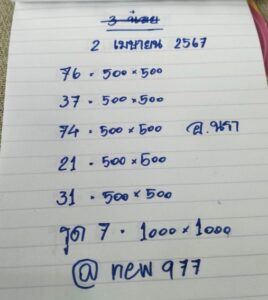 2 เมษายน 2567
76 · 500 × 500
37 · 500 × 500
74 · 500 × 500 อ.นรา
21 · 500 × 500
31 · 500 × 500
รูด 7 · 1000 × 1000
@ new 977